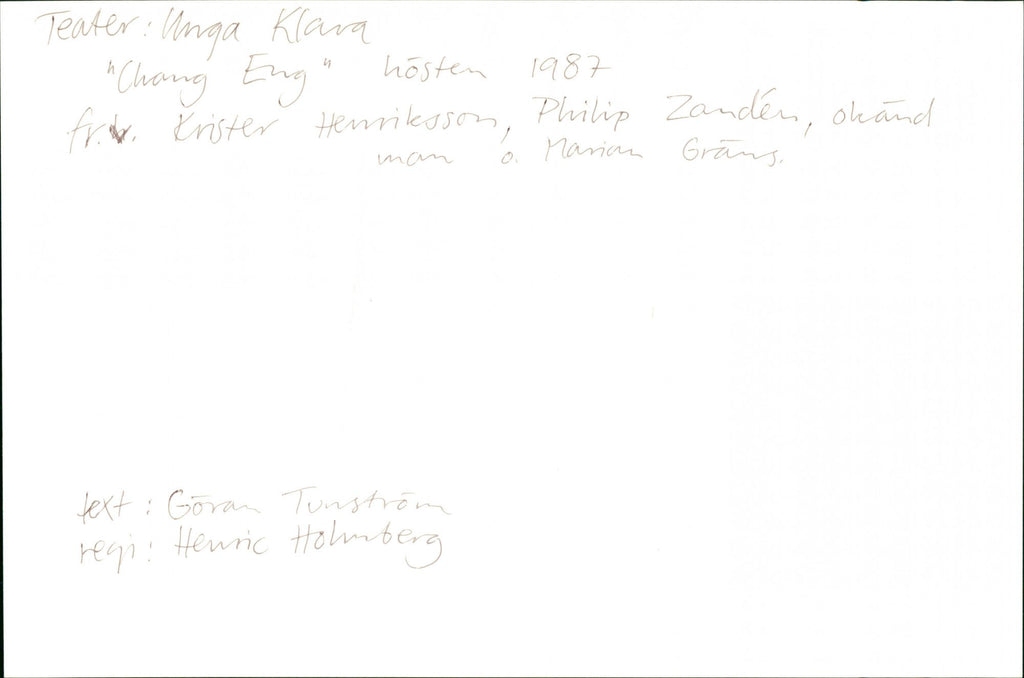 Teater: Unga Klara
"Chang Eng" hösten 1987
fr.v. Krister Henriksson, Philip Zandén, okänd
man o. Marian Gräns.
text: Göran Tunström
regi: Henric Holmberg